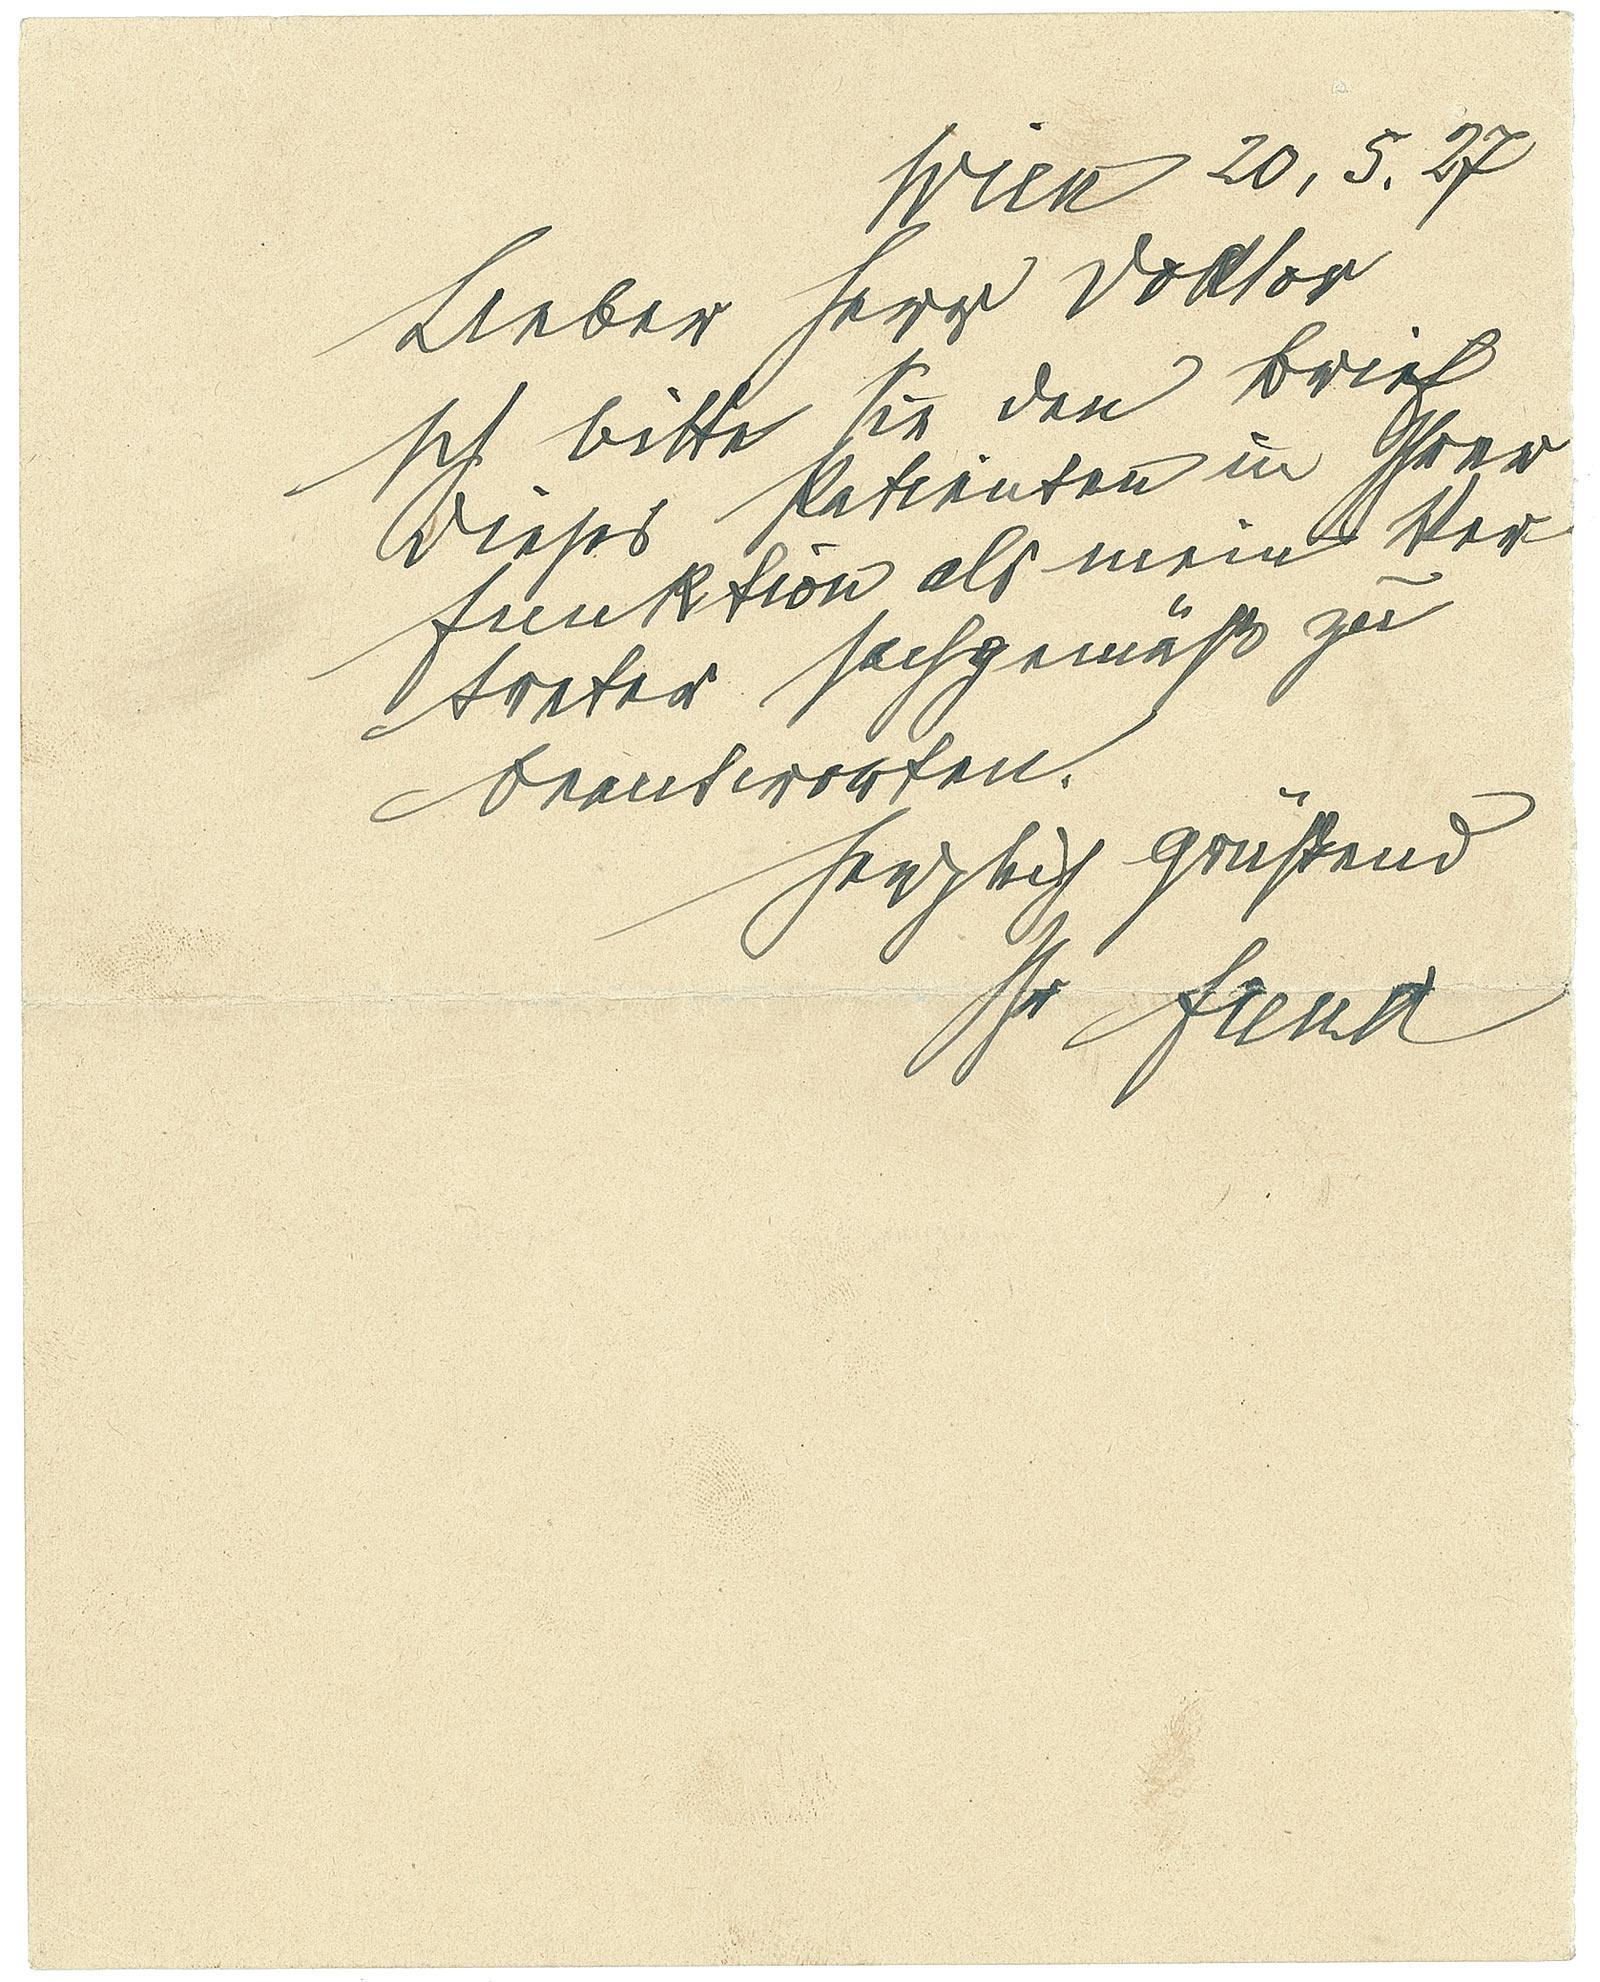 Wien 20, 5. 27
Lieber Herr Doktor
Ich bitte Sie den Brief
dieses Patienten in Ihrer
Funktion als mein Ver-
treter sachgemäß zu
beantworten.
Herzlich grüßend
Ihr